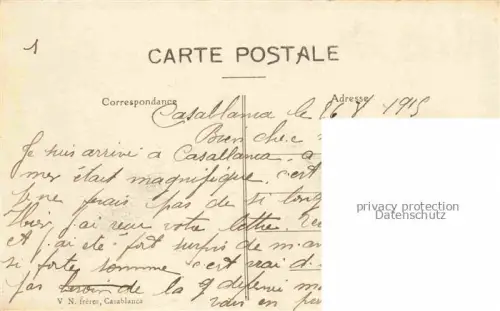 1
CARTE POSTALE
Correspondance
Adresse
Casablanca le 26 V 1915
Bien che
Je suis arrivé à Casablanca. a
mer était magnifique. c'est
je ne ferais pas de si long
Hier j'ai reçu votre lettre.
et j'ai été fort surpris de m
si forte somme c'est vrai d
pas besoin de la
vais en
V N. frères, Casablanca
privacy protection
Datenschutz